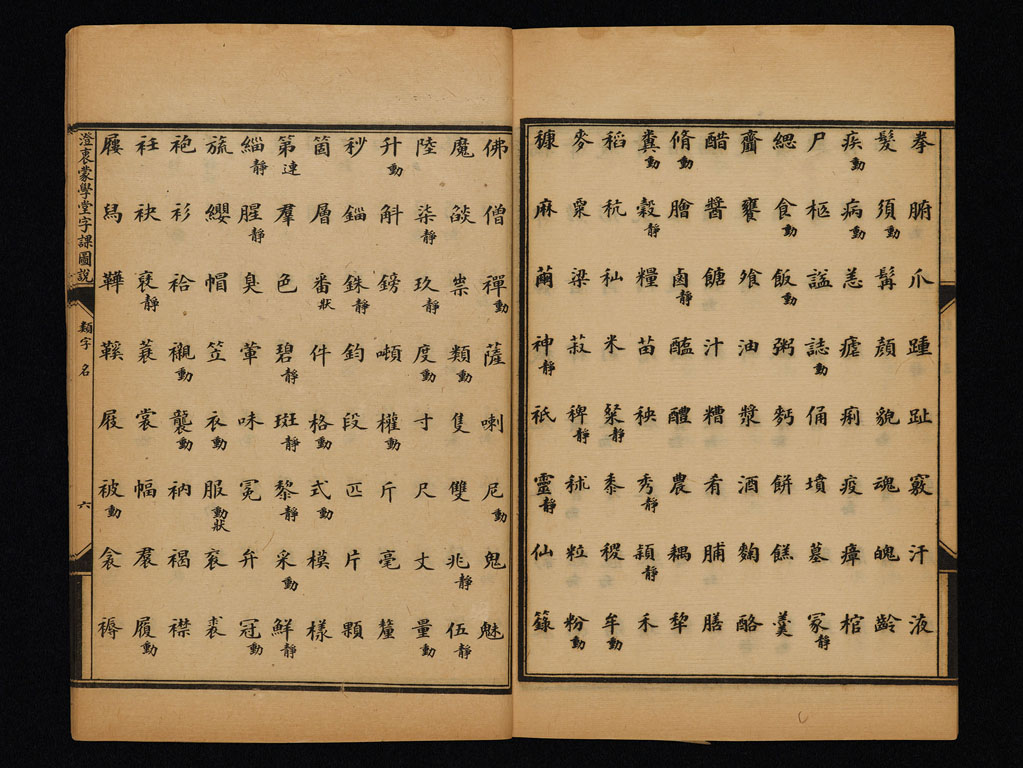 拳腑爪踵趾竅汗液
髮須動髯顏貌魂魄齡
疾動病動恙瘧痢疫瘴棺
尸柩謚誌動俑墳墓冢靜
緦食動飯動粥麪餅餻羹
齏饔飧油漿酒麴酪
醋醬餹汁糟肴脯膳
脩動膾鹵靜醢醴農耦犂
糞動穀靜糧苗秧秀靜穎靜禾
稻秔籼米粲靜黍稷牟動
麥粟粱菽稗靜秫粒粉動
穅麻繭神靜祇靈靜仙籙
佛僧禪動薩喇尼動鬼魅
魔燄祟類動隻雙兆靜伍靜
陸柒靜玖靜度動寸尺丈量動
升動斛鎊噸權動斤毫釐
秒錙銖靜鈞段匹片顆
箇層番狀件格動式動模樣
第連羣色碧靜斑靜黎靜采動鮮靜
緇靜腥靜臭葷味冕弁冠動
旒纓帽笠衣動服動狀袞裘
袍衫袷襯動襲動衲褐襟
衽袂裒靜蓑裳幅裠履動
屨舄鞾鞵屐被動衾褥
澄衷蒙學堂字課圖說
類字 名
六